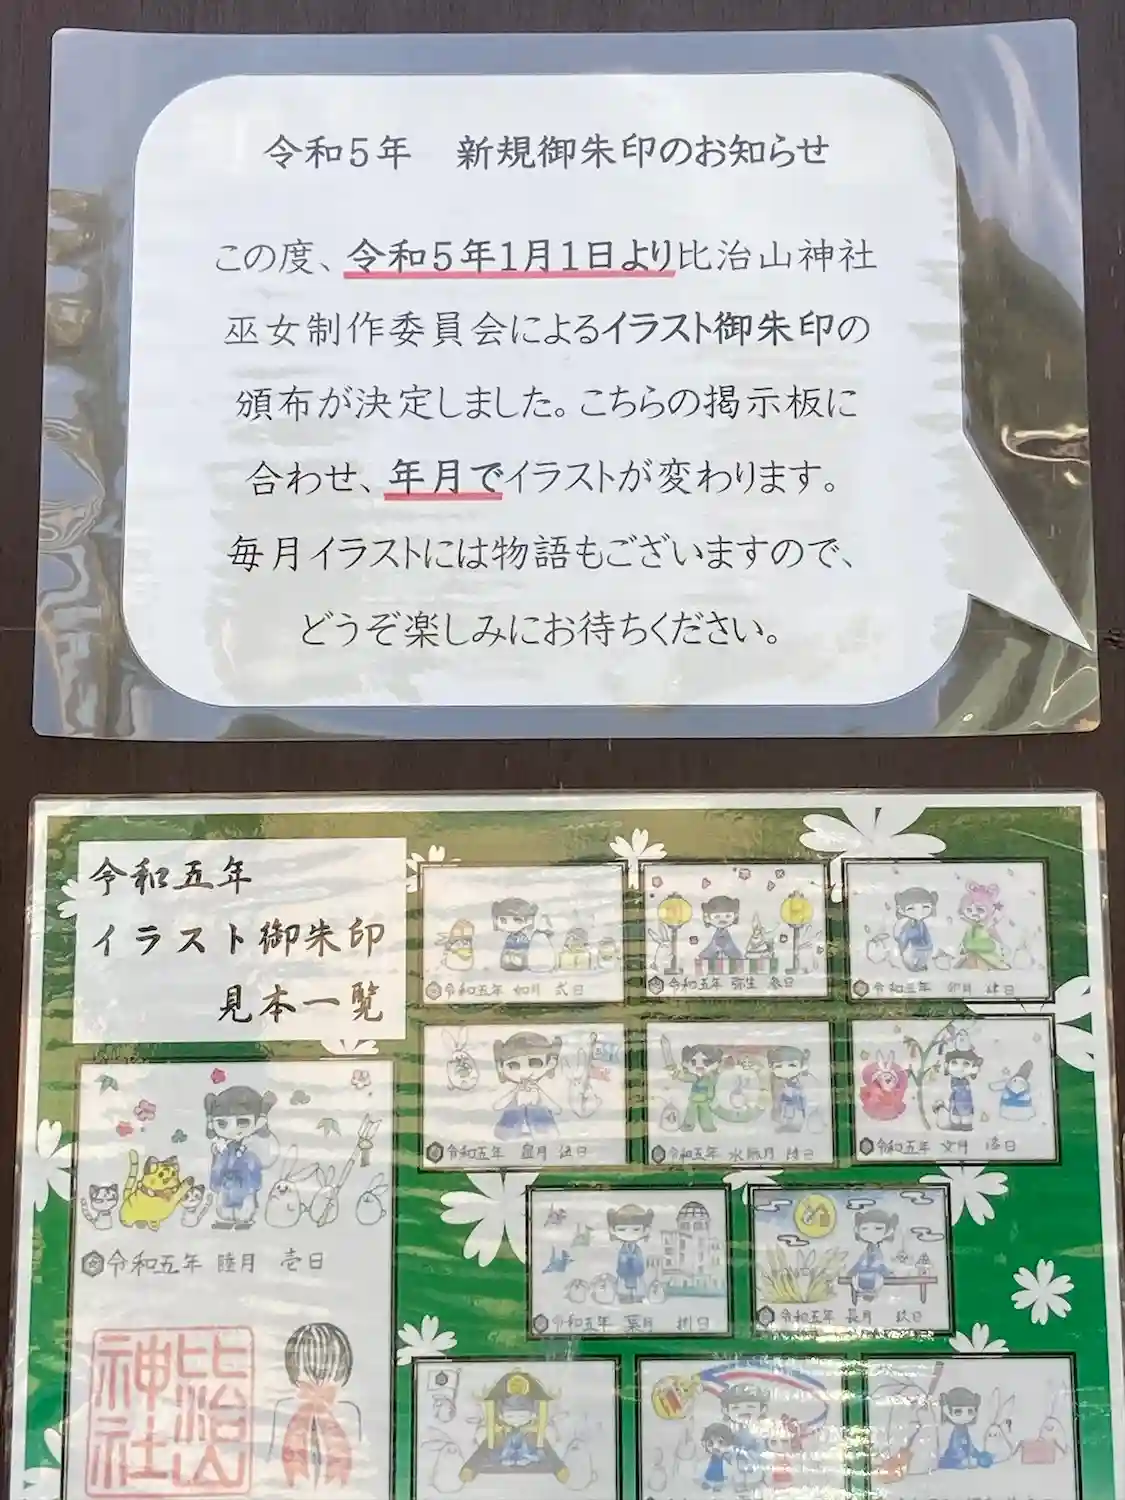 令和５年　新規御朱印のお知らせ
この度、令和５年１月１日より比治山神社
巫女制作委員会によるイラスト御朱印の
頒布が決定しました。こちらの掲示板に
合わせ、年月でイラストが変わります。
毎月イラストには物語もございますので、
どうぞ楽しみにお待ちください。
令和五年
イラスト御朱印
見本一覧
令和五年 如月 弍日
令和五年 弥生 参日
令和五年 卯月 肆日
令和五年 皐月 伍日
令和五年 水無月 陸日
令和五年 文月
令和五年 葉月 捌日
令和五年 長月 玖日
令和五年 睦月 壱日
比治山
神社